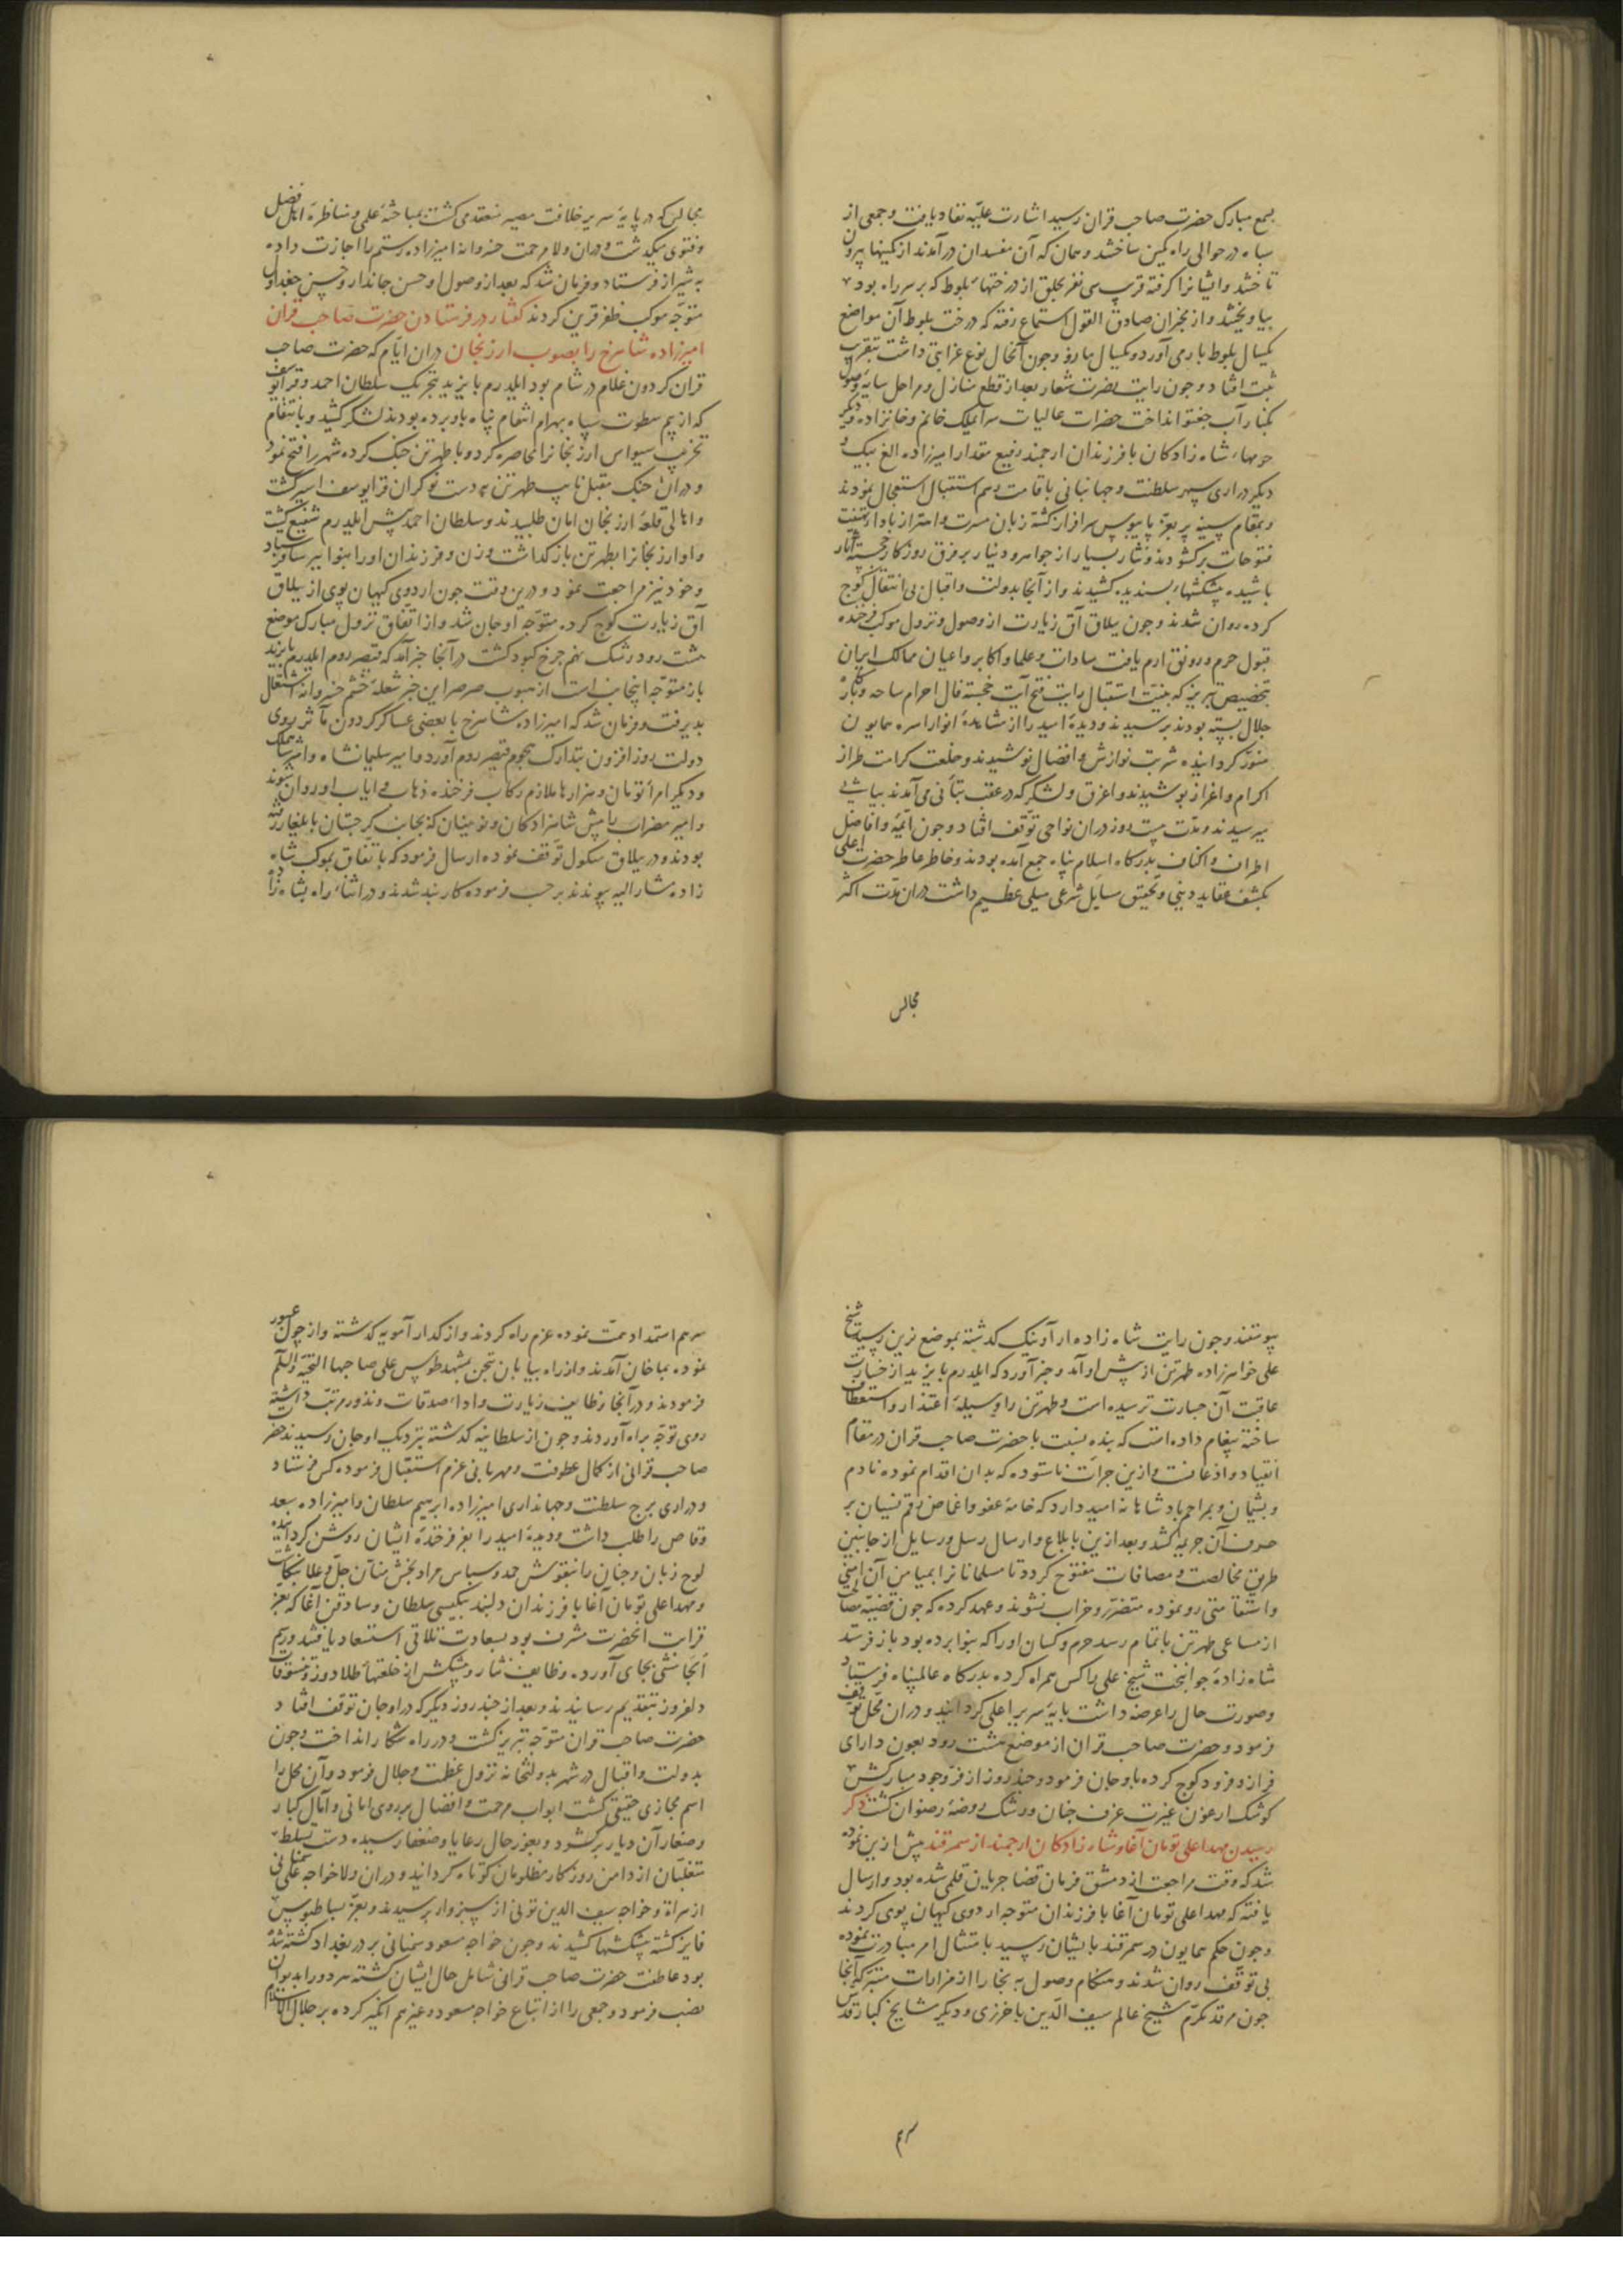 بسمع مبارک حضرت صاحب قران رسید اشارت علیّه نفاد یافت و جمعی از
سپاه در حوالی راه کمین ساختند و همان که آن مفسدان درآمدند از کمینها بیرون
تاختند و ایشانرا گرفته قرب سی نفر بحلق از درختهاء بلوط که بر سر راه بود
بیاویختند و از مخبران صادق القول استماع رفته که درخت بلوط آن مواضع
یکسال بلوط بار می آورد و یکسال مازو و چون آنحال نوع غرابتی داشت بتقریب
ثبت افتاد و چون رایت نصرت شعار بعد از قطع منازل و مراحل سایه وصول
بکنار آب جغتو انداخت حضرات عالیات سرایملک خانم و خانزاده و دیگر
حرمها و شاه زادکان با فرزندان ارجمند رفیع مقدار امیرزاده الغ بیک و
دیگر دراری سپهر سلطنت و جهانبانی باقامت رسم استقبال استعجال نمودند
و بمقام سپینه پر بعزّ پایبوس سرافراز کشته زبان مسرت و اهتزاز بادا تهنیت
فتوحات برکشودند و نثار بسیار از جواهر و دینار بر فرق روزکار خجسته آثار
پاشیده پیشکشهاء پسندیده کشیدند و از آنجا بدولت و اقبال بی انتقال کوچ
کرده روان شدند و چون ییلاق آق زیارت از وصول و نزول موکب فرخنده
قبول حرم و رونق ارم یافت سادات و علما و اکابر و اعیان ممالک ایران
بتخصیص تبریز که بنیّت استقبال رایت فتح آیت خجسته فال احرام ساحه و بارگاه
جلال بسته بودند برسیدند و دیدهٔ امید را از مشاهدهٔ انوار اسره همایون
منوّر کردانیده شربت نوازش و افضال نوشیدند و خلعت کرامت طراز
اکرام و اعزاز پوشیدند و اغرق و لشکر که در عقب بتأنی می آمدند بیاشی
میرسیدند و مدّت بیست روز دران نواحی توقّف افتاد و چون ائمّه و افاضل
اطراف و اکناف بدرکاه اسلام پناه جمع آمده بودند و خاطر عاطر حضرت اعلی
بکشف عقاید دینی و تحقیق مسایل شرعی میلی عظیم داشت دران مدّت اکثر
مجالس
مجالس که در پایهٔ سریر خلافت مصیر منعقد می کشت بمباحثهٔ علمی و مناظرهٔ اهل فضل
و فتوی میکذشت و دران ولا مرحمت خسروانه امیرزاده رستم را اجازت داده
به شیراز فرستاد و فرمان شد که بعد از وصول او حسن جاندار و حسن جغداول
متوجّه موکب ظفر قرین کردند کفتار در فرستادن حضرت صاحب قران
امیرزاده شاهرخ را بصوب ارزنجان دران ایّام که حضرت صاحب
قران کردون غلام در شام بود ایلدرم بایزید بتحریک سلطان احمد و قرا یوسف
که از بیم سطوت سپاه بهرام انتقام پناه باو برده بودند لشکر کشید و بانتقام
تخریب سیواس ارزنجانرا محاصره کرد و با طهرتن جنک کرده شهر را فتح نمود
و دران جنک مقبل نایب طهرتن به دست نوکران قرا یوسف اسیر کشت
و اهالی قلعهٔ ارزنجان امان طلبیدند و سلطان احمد پیش ایلدرم شفیع کشت
و او ارزنجانرا بطهرتن باز کذاشت و زن و فرزندان او را بنوا ببرسا فرستاد
و خود نیز مراجعت نمود و درین وقت چون اردوی کیهان پوی از ییلاق
آق زیارت کوچ کرده متوجّه اوجان شد و از اتّفاق نزول مبارک موضع
هشت رود رشک نهم چرخ کبود کشت در آنجا خبر آمد که قیصر روم ایلدرم بایزید
باز متوجّه اینجانب است از هبوب صرصر این خبر شعلهٔ خشم خسروانه اشتعال
پذیرفت و فرمان شد که امیرزاده شاهرخ با بعضی عساکر کردون مآثر روی
دولت روزافزون بتدارک هجوم قیصر روم آورد و امیر سلیمانشاه و امیر شاهملک
و دیکر امراء تومان و هزارها ملازم رکاب فرخنده ذهاب و ایاب او روان شوند
و امیر مضراب پیش شاهزادکان و نوینیان که بجانب کرجستان بایلغار رفته
بودند و در ییلاق سنکول توقّف نموده ارسال فرمود که باتّفاق بموکب شاه
زاده مشار الیه پیوندند بر حسب فرموده کاربند شدند و در اثناء راه بشاه زاده
پیوستند و چون رایت شاه زاده از آونیک کذشته بموضع نرین رسید شیخ
علی خواهرزاده طهرتن از پیش او آمد و خبر آورد که ایلدرم بایزید از خسارت
عاقبت آن جسارت ترسیده است و طهرتن را وسیلهٔ اعتذار و استعطاف
ساخته پیغام داده است که بنده نسبت با حضرت صاحب قران در مقام
انقیاد و اذعانست و ازین جرات ناستوده که بدان اقدام نموده نادم
و پشیمان و بمراحم پادشاهانه امیدوارد که خامهٔ عفو و اغماض رقم نسیان بر
حرف آن جریمه کشد و بعد ازین بابلاغ و ارسال رسل و رسایل از جانبین
طریق مخالصت و مصافات مفتوح کردد تا مسلمانانرا بمیامن آن امنی
و استقامتی رو نموده متضرّر و خراب نشوند و عهد کرده که چون قضیّه مصالحه
از مساعی طهرتن باتمام رسد حرم و کسان او را که بنوا برده بود باز فرستد
شاه زادهٔ جوانبخت شیخ علی را کس همراه کرده بدرکاه عالمپناه فرستاد
و صورت حال را عرضه داشت پایهٔ سریر اعلی کردانید و دران محلّ توقّف
فرمود و حضرت صاحب قران از موضع هشت رود بعون دارای
فراز و فرود کوچ کرده باوجان فرمود و چند روز از فرّ وجود مبارکش
کوشک ارغون غیرت غرف جنان و رشک روضهٔ رضوان کشت ذکر
رسیدن مهد اعلی تومان آغا و شاه زادکان ارجمند از سمرقند پیش ازین نموده
شد که وقت مراجعت از دمشق فرمان قضا جریان قلمی شده بود و ارسال
یافته که مهد اعلی تومان آغا با فرزندان متوجه اردوی کیهان پوی کردند
و چون حکم همایون در سمرقند بایشان رسید بامتثال امر مبادرت نموده
بی توقّف روان شدند و هنکام وصول به بخارا از مزارات متبرّکه آنجا
چون مرقد مکرّم شیخ عالم سیف الدّین باخرزی و دیکر مشایخ کبار قدّس
سرهم
سرهم استمداد همّت نموده عزم راه کردند و از کذار آمویه کذشته و از چول عبور
نموده بماخان آمدند و از راه بیابان تجن بمشهد طوس علی صاحبها التحیّه و السّلم
فرمودند و در آنجا وظایف زیارت و اداء صدقات و نذور مرتّب داشته
روی توجّه براه آوردند و چون از سلطانیه کذشته بنزدیک اوجان رسیدند حضرت
صاحب قرانی از کمال عطوفت و مهربانی عزم استقبال فرموده کس فرستاد
و دراری برج سلطنت و جهانداری امیرزاده ابرهیم سلطان و امیرزاده سعد
وقاص را طلب داشت و دیدهٔ امید را بغرّ فرخندهٔ ایشان روشن کردانیده
لوح زبان و جنان را بنقوش حمد و سپاس مراد بخش منّان جلّ و علا بنکاشت
و مهد اعلی تومان آغا با فرزندان دلبند بیکیسی سلطان و سادقین آغا که بعزّ
قرابت آنحضرت مشرف بود بسعادت تلاقی استسعاد یافتند و رسم
آنجامشی بجای آورده وظایف نثار و پیشکش از خلعتهاء طلادوز و تنسوقات
دلفروز بتقدیم رسانیدند و بعد از چند روز دیکر که در اوجان توقّف افتاد
حضرت صاحب قران متوجّه تبریز کشت و در راه شکار انداخت و چون
بدولت و اقبال در شهر بدولتخانه نزول عظمت و جلال فرمود و آن محل را
اسم مجازی حقیقی کشت ابواب مرحمت و افضال بر روی امانی و آمال کبار
و صغار آن دیار برکشود و بغور حال رعایا و ضعفا رسیده دست تسلّط
متغلّبان از دامن روزکار مظلومان کوتاه کردانید و دران ولا خواجه علی سمنانی
از هراة و خواجه سیف الدین تونی از سبزوار برسیدند و بعزّ بساطبوس
فایز کشته پیشکشها کشیدند و چون خواجه مسعود سمنانی بر در بغداد کشته شده
بود عاطفت حضرت صاحب قرانی شامل حال ایشان کشته هر دو را بدیوان
نصب فرمود و جمعی را از اتباع خواجه مسعود و غیرهم انکیز کرده بر جلال الاسلام